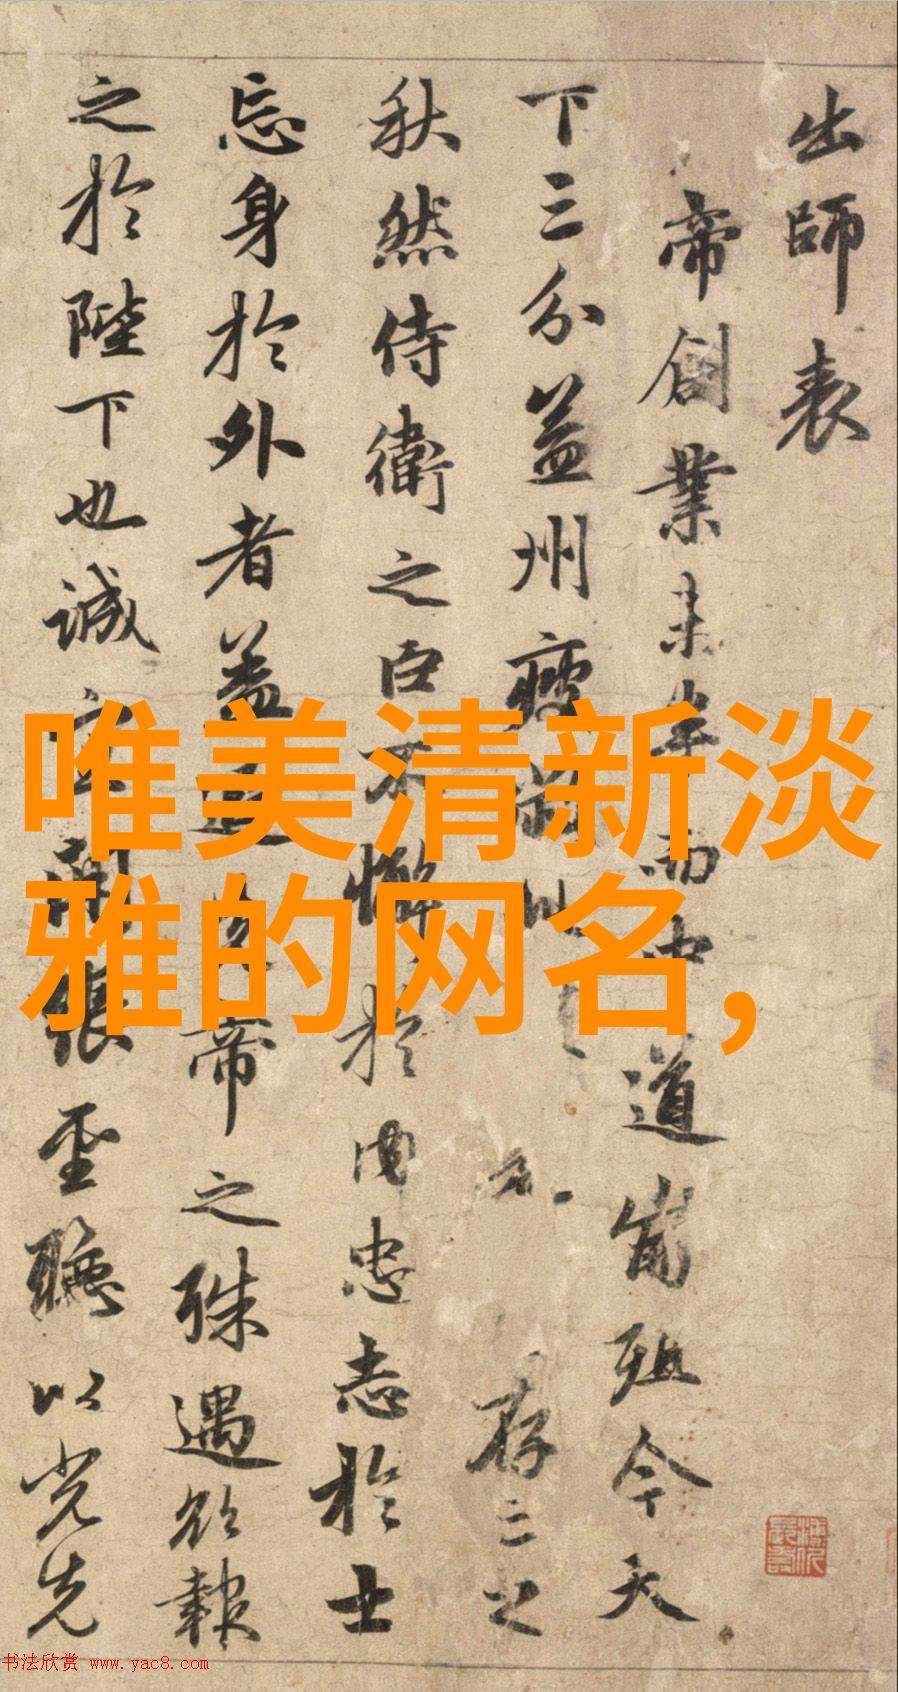 出師表
帝創業未半而中道崩殂今天
下三分益州疲弊 存之
秋然侍衛之臣不懈於内忠志於士
忘身於外者蓋追先帝之殊遇欲報
之於陛下也誠宜開張聖聽以光先
唯美清新淡
雅的网名,
书法欣赏 www.yac8.com